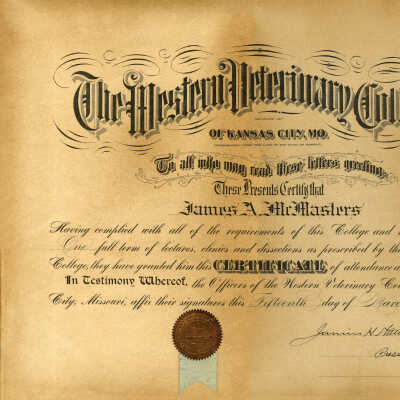 The Western Veterinary Col
OF KANSAS CITY, MO.
To all who may read these letters greeting.
These Presents Certify that
James A. McMasters
Having complied with all of the requirements of this College and
One full term of lectures, clinics and dissections as prescribed by th
College, they have granted him this CERTIFICATE of attendance a
In Testimony Whereof, the Officers of the Western Veterinary Co
City, Missouri, affix their signatures this Fifteenth day of Marc